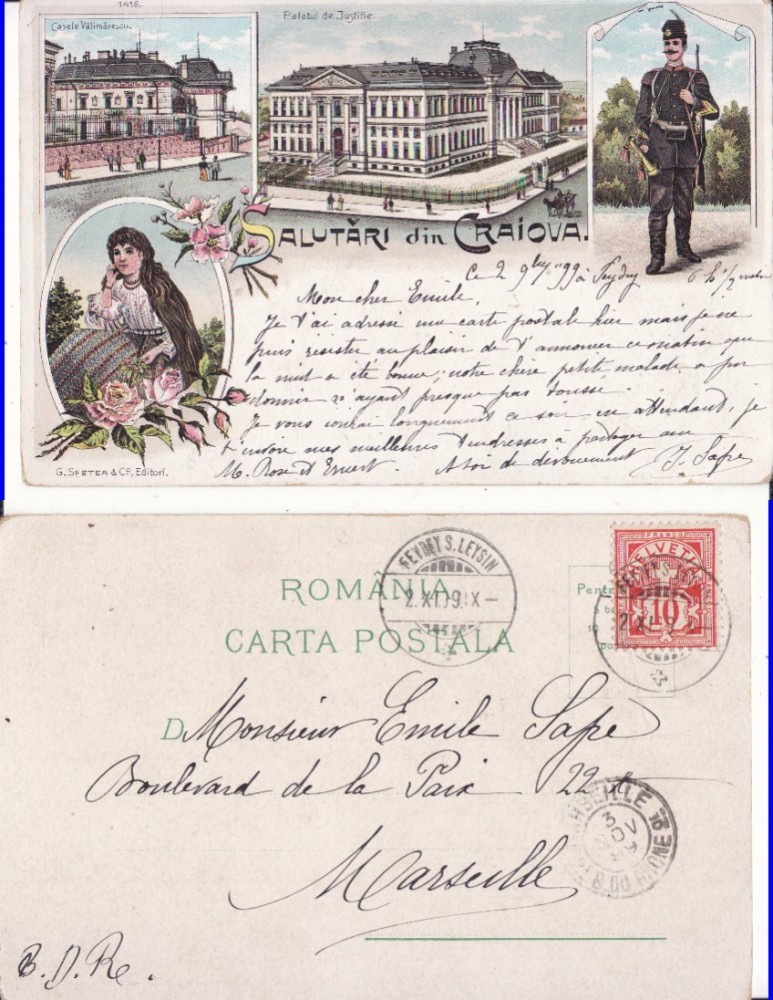 1418.
Casele Vălimărescu.
Palatul de Justiție
SALUTĂRI din CRAIOVA.
Ce 2 9bre 99 à Feydey 6 h 1/2 matin
Mon cher Emile,
Je t'ai adressé une carte postale hier mais je ne
puis résister au plaisir de t'annoncer ce matin que
la nuit a été bonne; notre chère petite malade a pu
dormir n'ayant presque pas toussé.
Je vous longuement ce soir en attendant, je
t'envoie mes meilleures tendresses à partager avec
M. Rose et Ernest. A toi de dévouement J. Sapé
G. SFETEA & Co, Editori.
FEYDEY S. LEYSIN
2.XI.99.IX-
ROMÂNIA
CARTA POSTALA
FRANCO
HELVETIA
10
FEYDEY S. LEYSIN
2.XI.9
Pent
5 ba
10
D
Monsieur Emile Sapé
Boulevard de la Paix 22 A
Marseille
MARSEILLE
B. DU RHONE
B.D.Re.